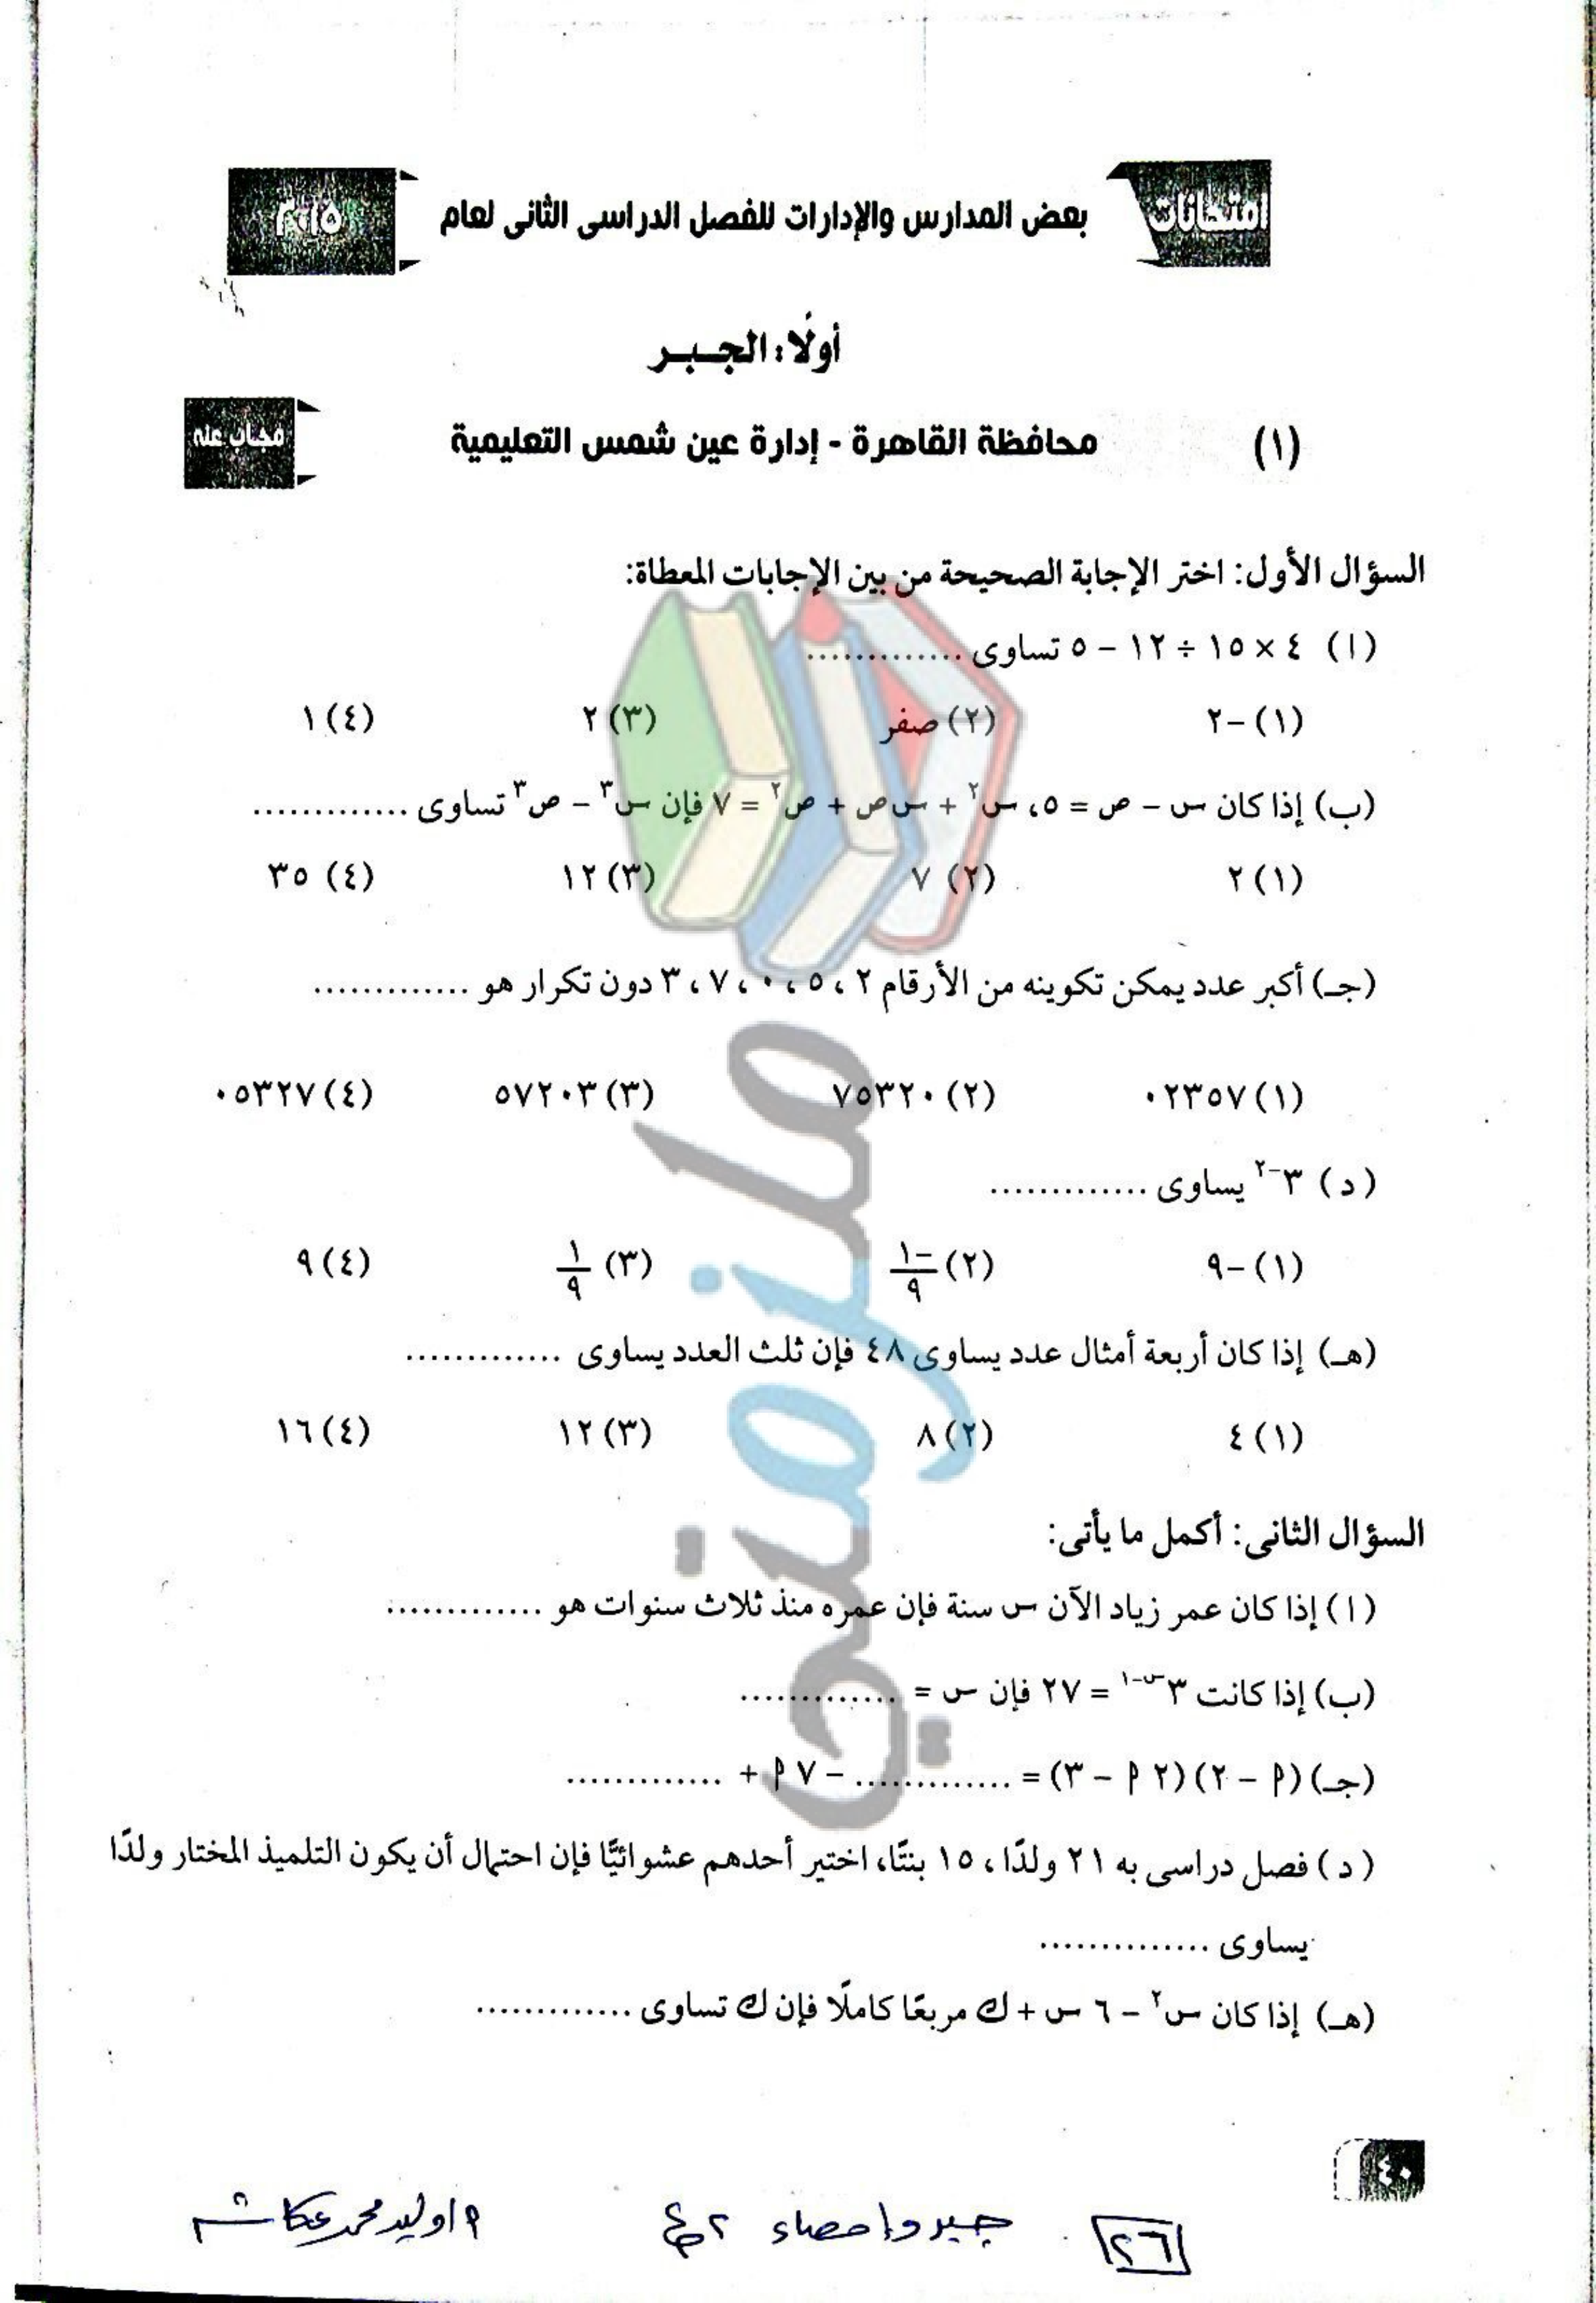 امتحانات بعض المدارس والإدارات للفصل الدراسى الثانى لعام ٢٠١٥
أولًا: الجبر
(١) محافظة القاهرة - إدارة عين شمس التعليمية مجاب عنه
السؤال الأول: اختر الإجابة الصحيحة من بين الإجابات المعطاة:
(ا) ٤ × ١٥ ÷ ١٢ – ٥ تساوى .............
(١) –٢ (٢) صفر (٣) ٢ (٤) ١
(ب) إذا كان س – ص = ٥، س٢ + س ص + ص٢ = ٧ فإن س٣ – ص٣ تساوى .............
(١) ٢ (٢) ٧ (٣) ١٢ (٤) ٣٥
(جـ) أكبر عدد يمكن تكوينه من الأرقام ٢ ، ٥ ، ٠ ، ٧ ، ٣ دون تكرار هو .............
(١) ٠٢٣٥٧ (٢) ٧٥٣٢٠ (٣) ٥٧٢٠٣ (٤) ٠٥٣٢٧
(د) ٣–٢ يساوى .............
(١) –٩ (٢) –١/٩ (٣) ١/٩ (٤) ٩
(هـ) إذا كان أربعة أمثال عدد يساوى ٤٨ فإن ثلث العدد يساوى .............
(١) ٤ (٢) ٨ (٣) ١٢ (٤) ١٦
السؤال الثانى: أكمل ما يأتى:
(ا) إذا كان عمر زياد الآن س سنة فإن عمره منذ ثلاث سنوات هو .............
(ب) إذا كانت ٣س–١ = ٢٧ فإن س = .............
(جـ) (م – ٢) (٢ م – ٣) = ............. – ٧ م + .............
(د) فصل دراسى به ٢١ ولدًا ، ١٥ بنتًا، اختير أحدهم عشوائيًّا فإن احتمال أن يكون التلميذ المختار ولدًا
يساوى ..............
(هـ) إذا كان س٢ – ٦ س + ك مربعًا كاملًا فإن ك تساوى .............
٤٠
٢٦ جبر وإحصاء ٢ع أ/وليد محمد عكاشة
ملزمتي